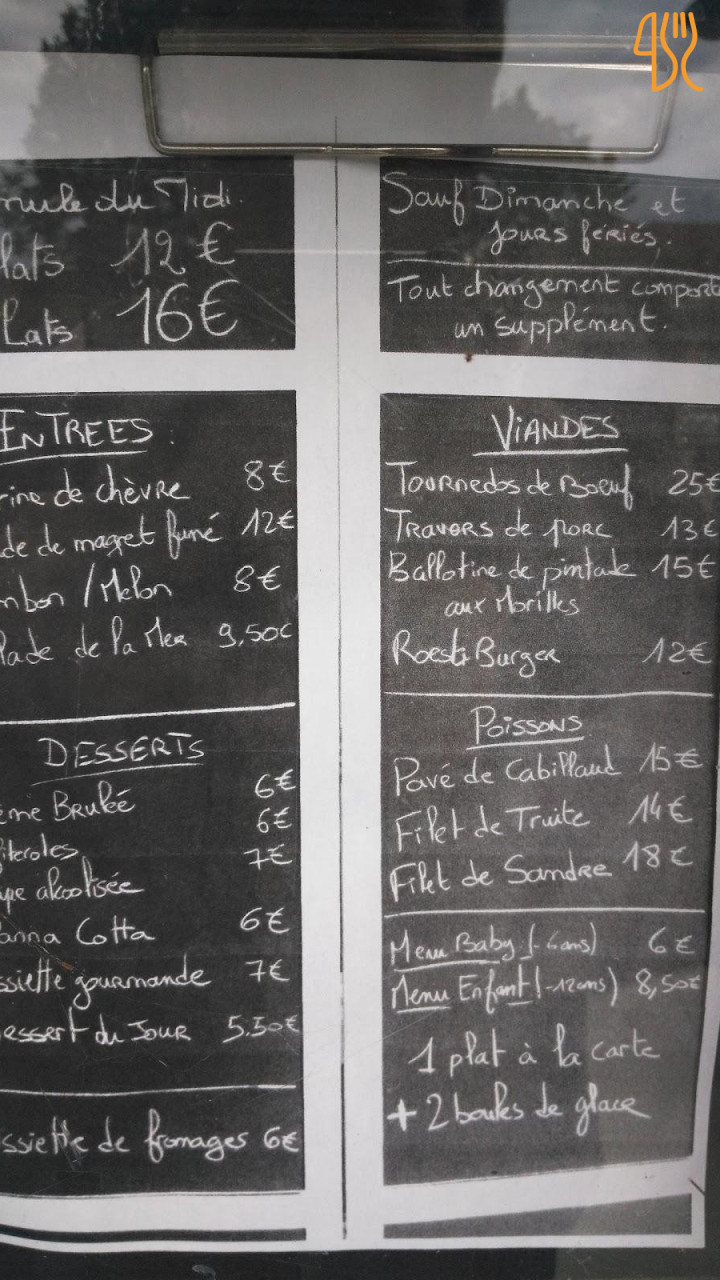 mule du Midi.
lats 12€
lats 16€
ENTREES :
rine de chèvre 8€
de de magret fumé 12€
mbon / Melon 8€
lade de la Mer 9,50€
DESSERTS
ème Brulée 6€
iteroles 6€
upe alcoolisée 7€
anna Cotta 6€
ssiette gourmande 7€
essert du Jour 5.50€
ssiette de fromages 6€
Sauf Dimanche et
Jours fériés.
Tout changement comporte
un supplément.
VIANDES
Tournedos de Boeuf 25€
Travers de porc 13€
Ballotine de pintade 15€
aux Morilles
Roesti Burger 12€
POISSONS
Pavé de Cabillaud 15€
Filet de Truite 14€
Filet de Sandre 18€
Menu Baby (-6ans) 6€
Menu Enfant (-12ans) 8,50€
1 plat à la carte
+ 2 boules de glace